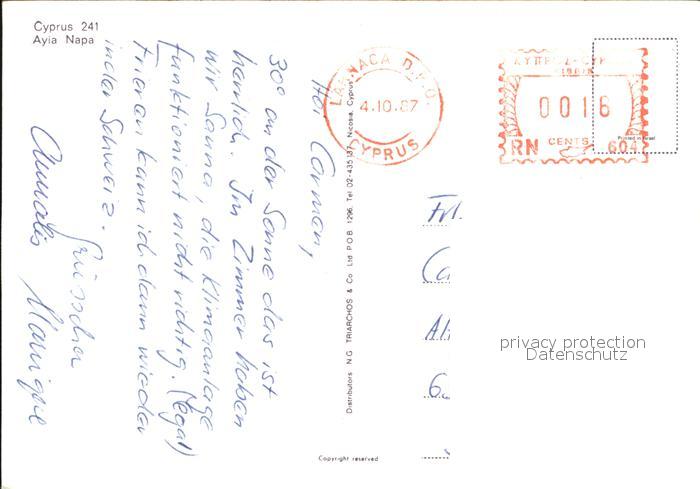 Cyprus 241
Ayia Napa
Hoi Carmen,
30° an der Sonne das ist
herrlich. Im Zimmer haben
wir Sauna, die Klimaanlage
funktioniert nicht richtig. (egal)
frieren kann ich dann wieder
in der Schweiz.
Grüsschen
Monique
Distributors N.G. TRIARCHOS & Co. Ltd P.O.B. 1296, Tel. 02-435137, Nicosia, Cyprus
Copyright reserved
LARNACA D.P.O.
4.10.87
CYPRUS
0016
CENTS
RN
604
Printed in Israel
Frl.
Ca
Al
6
privacy protection
Datenschutz